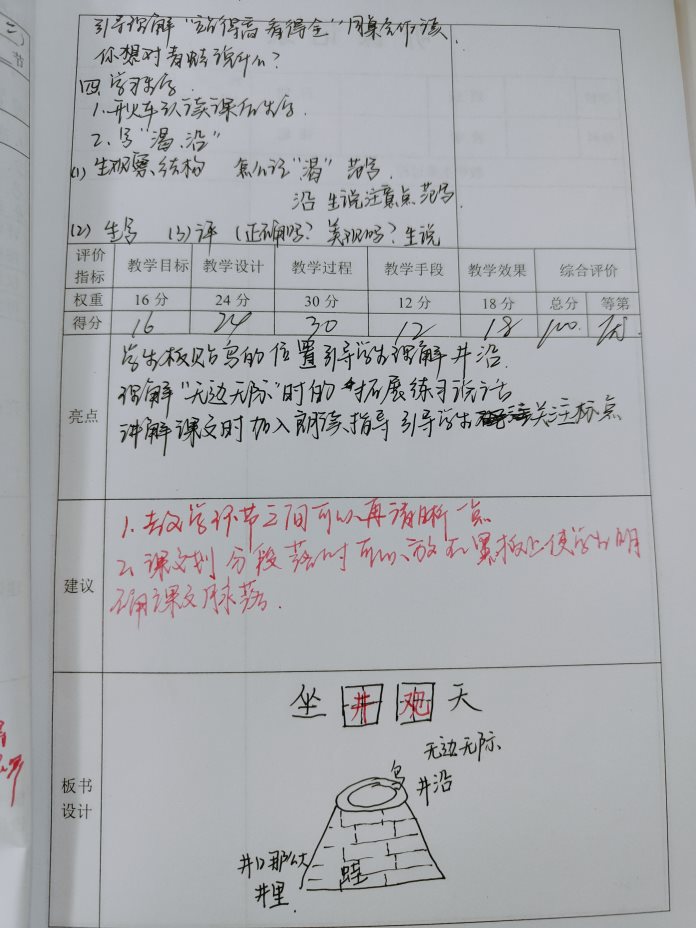 引导理解“站得高 看得全”同桌合作读
你想对青蛙说什么？
四.学习生字
1.开火车认读课后生字.
2.写“渴、沿”
(1) 生观察结构 怎么记“渴”范写.
沿 生说注意点范写.
(2) 生写 (3)评 (正确吗? 美观吗? 生说
评价指标 教学目标 教学设计 教学过程 教学手段 教学效果 综合评价
权重 16分 24分 30分 12分 18分 总分 等第
得分 16 24 30 12 18 100. 优.
亮点
学生板贴鸟的位置引导学生理解井沿.
理解“无边无际”时的拓展练习说话
讲解课文时加入朗读指导 引导学生关注标点
建议
1.教学环节之间可以再清晰一点
2.课文划分段落时可以放在黑板上使学生明
确课文脉落.
板书设计
坐井观天
无边无际
鸟
井沿
井口那么大
蛙
井里.